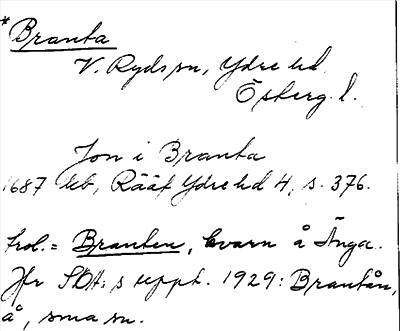 *Branta
V. Ryds sn, Ydre hd
Östergl.
Jon i Branta
1687 db, Rääf Ydre hd 4, s. 376.
trol. = Branten, kvarn å Änga.
Jfr SOA:s uppt. 1929: Brantån,
å, sma sn.